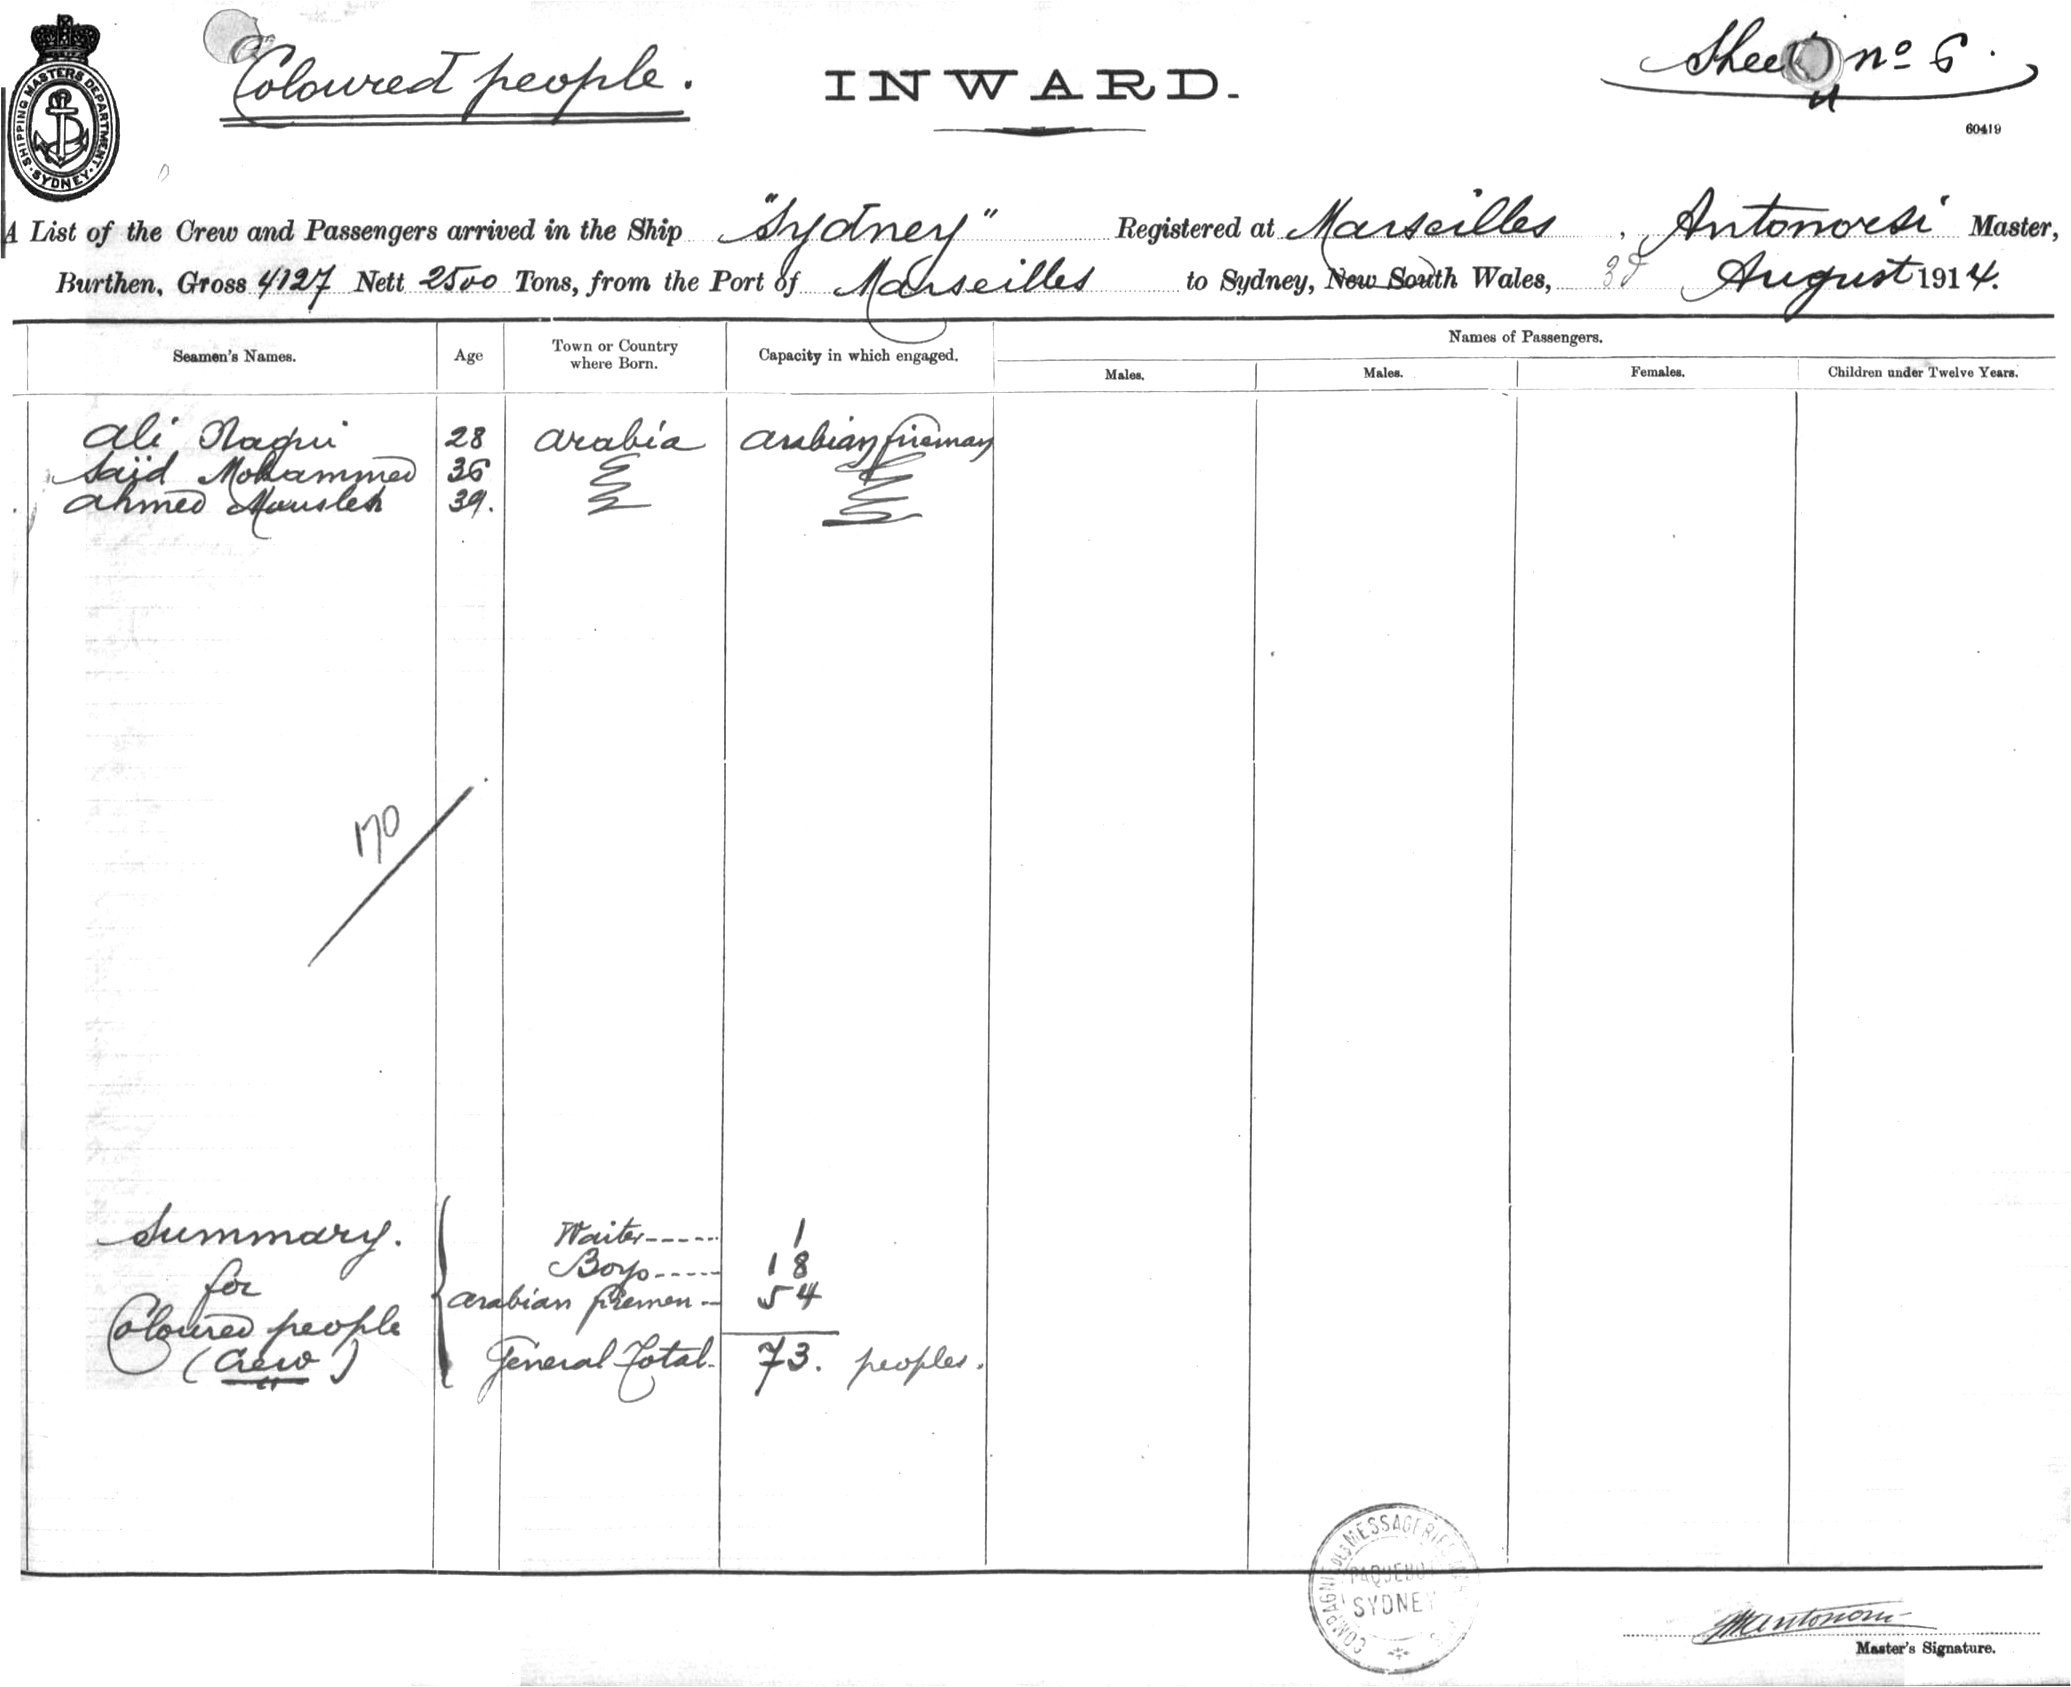 Coloured people.
INWARD.
Sheet no 6.
60419
SHIPPING MASTERS DEPARTMENT. SYDNEY.
A List of the Crew and Passengers arrived in the Ship "Sydney" Registered at Marseilles, Master,
Burthen, Gross 4127 Nett 2500 Tons, from the Port of Marseilles to Sydney, New South Wales, 3d August 1914.
Names of Passengers.
Seamen's Names. Age Town or Country where Born. Capacity in which engaged. Males. Males. Females. Children under Twelve Years.
Ali Nagui 28 Arabia Arabian fireman
Saïd Mohammed 36
Ahmed Mousleh 39.
170
Summary. Waiter----- 1
for Boys----- 18
Coloured people Arabian firemen-- 54
(Crew) General Total- 73. peoples.
COMPAGNIE DES MESSAGERIES
PAQUEBOT
SYDNEY
Master's Signature.